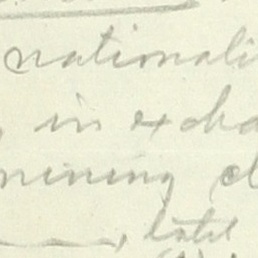 nationali
, in excha
mining cl
, hotel